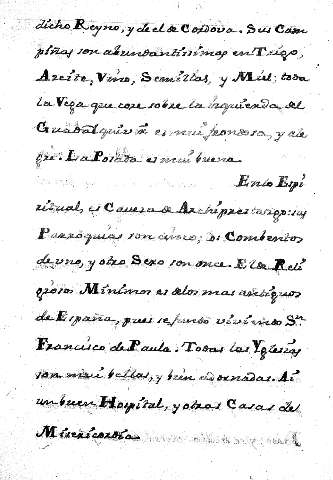 dicho Reyno, y de el de Cordova. Sus Cam
piñas son abundantissimas en Trigo,
Azeite, Vino, Semillas, y Miel: toda
la Vega que core sobre la izquierda del
Guadalquivir es mui frondosa, y ale
gre. La Posada es mui buena.
En lo Espi
ritual, es Caveza de Archiprestazgo: sus
Parroquias son cinco; los Combentos
de uno, y otro Sexo son once. El de Reli
giosos Minimos es de los mas antiguos
de España, pues se fundó viviendo Sn.
Francisco de Paula. Todas las Yglesias
son mui bellas, y bien adornadas. Ai
un buen Hospital, y otras Casas de
Misericordia.